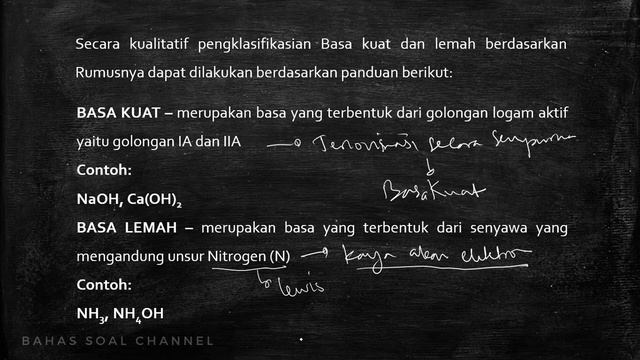 Secara kualitatif pengklasifikasian Basa kuat dan lemah berdasarkan
Rumusnya dapat dilakukan berdasarkan panduan berikut:
BASA KUAT – merupakan basa yang terbentuk dari golongan logam aktif
yaitu golongan IA dan IIA → Terionisasi secara sempurna
Contoh:
Basa Kuat
NaOH, Ca(OH)₂
BASA LEMAH – merupakan basa yang terbentuk dari senyawa yang
mengandung unsur Nitrogen (N) → kaya akan elektron
Contoh:
↳ lewis
NH₃, NH₄OH
BAHAS SOAL CHANNEL